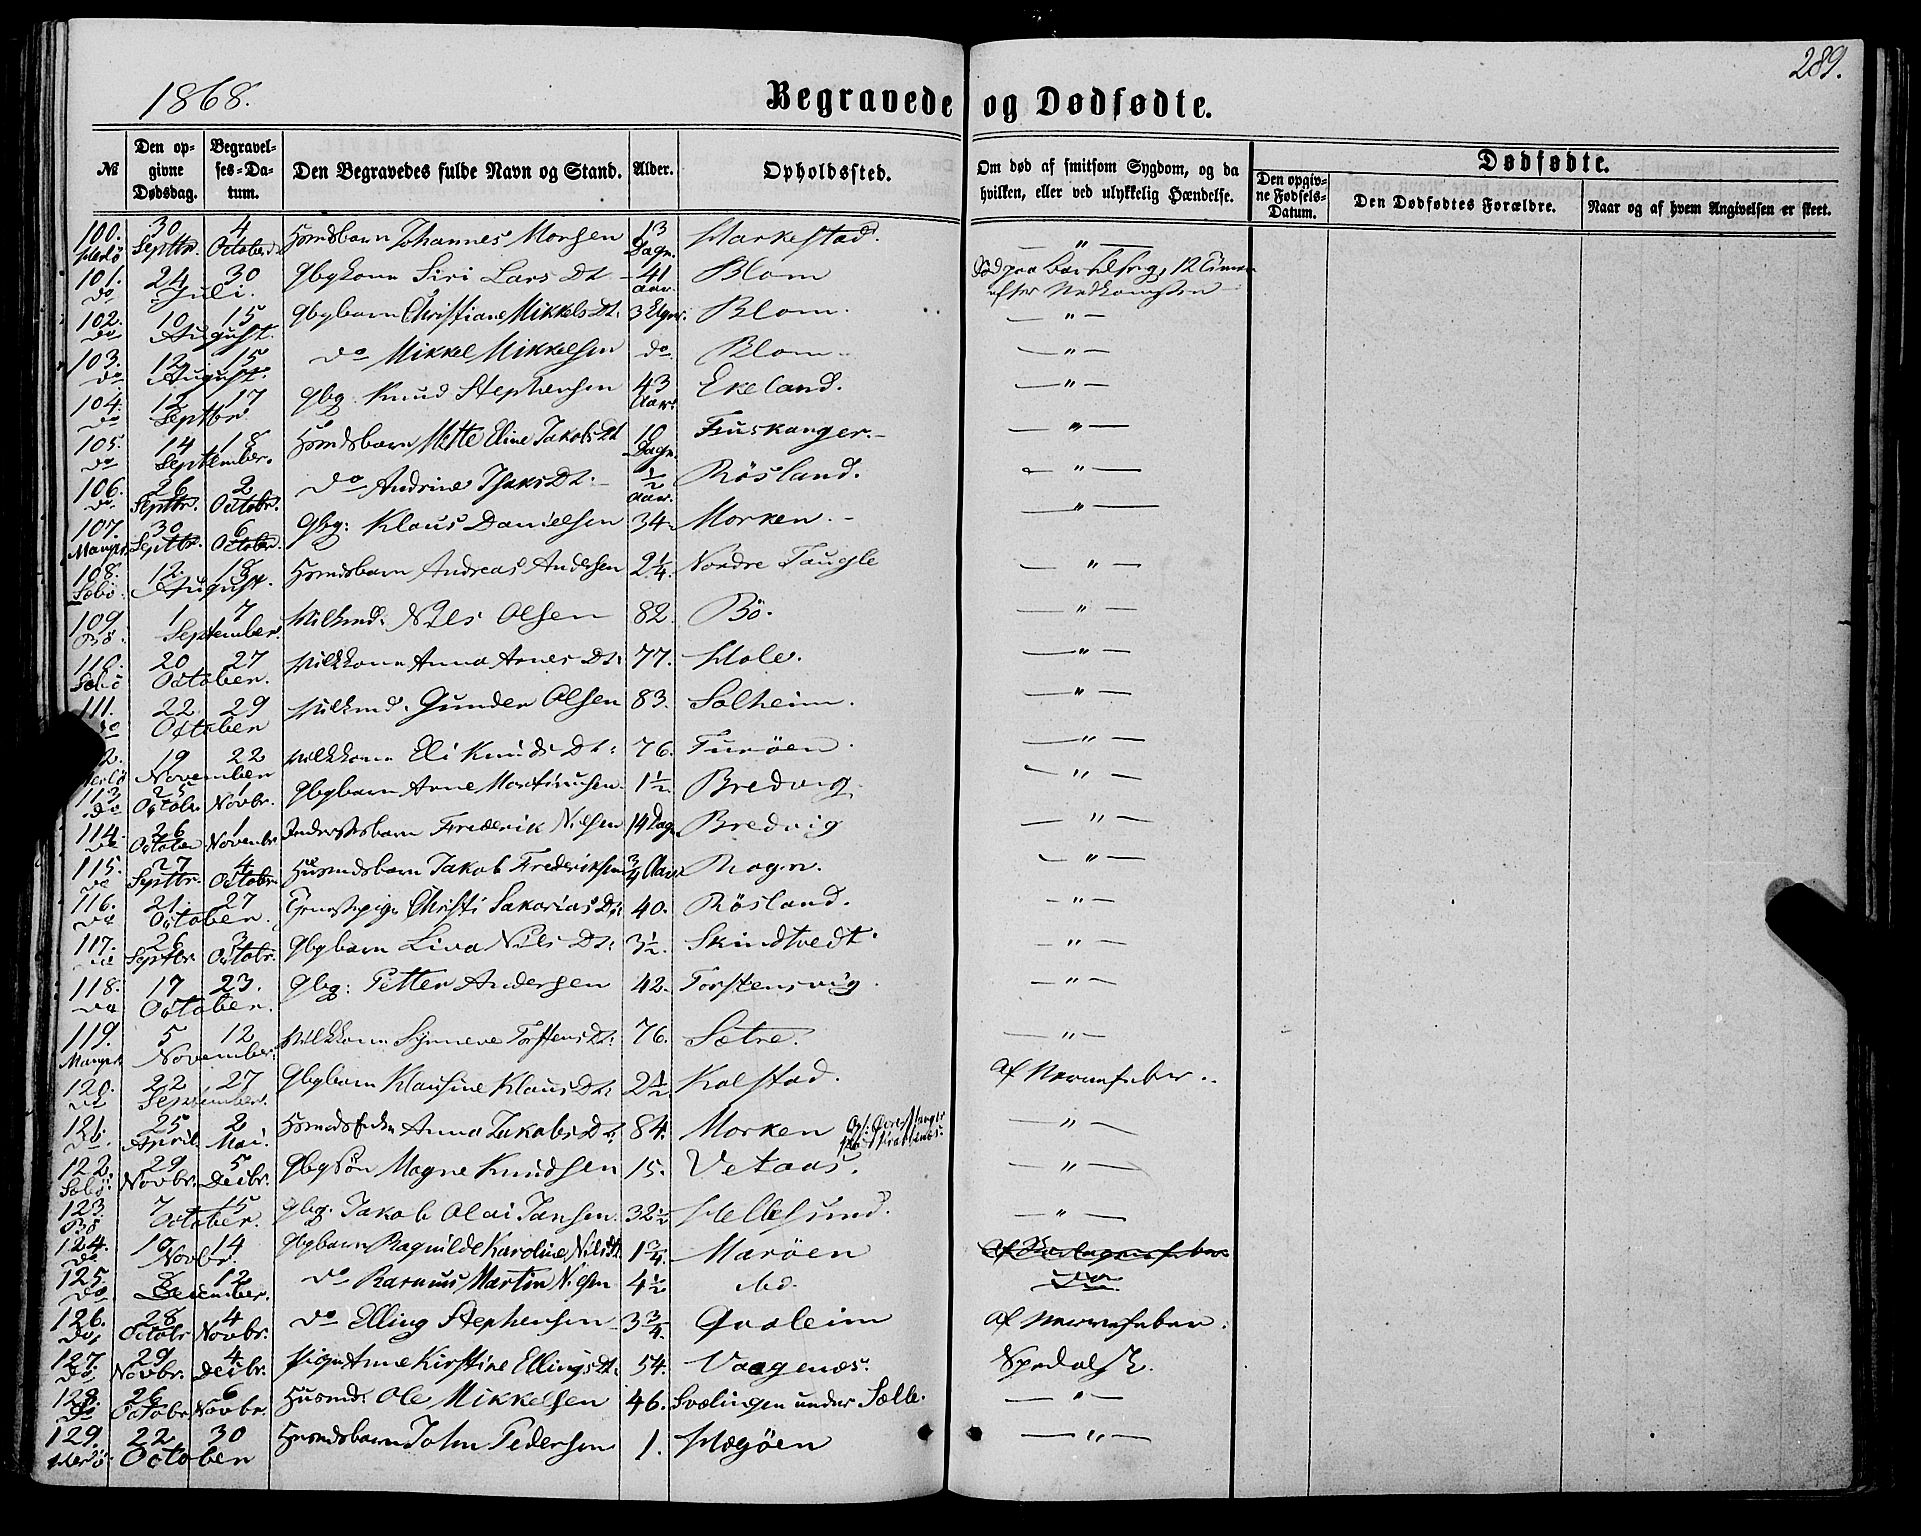 1868.
289.
Begravede og Dødfødte.
№
Den opgivne Dødsdag.
Begravelses-Datum.
Den Begravedes fulde Navn og Stand.
Alder.
Opholdssted.
Om død af smitsom Sygdom, og da hvilken, eller ved ulykkelig Hændelse.
Dødfødte.
Den opgivne Fødsels-Datum.
Den Dødfødtes Forældre.
Naar og af hvem Angivelsen er skeet.
100. Herlö 30 Septbr. 4 October Hmdsbarn Johannes Monsen 13 Dage. Harkestad. — " —
101. do 24 30 Juli. Gbgkone Siri Lars Dt 41 Aar. Blom Død paa Barselseng, 12 Timer
efter Nedkomsten
102. do 10 15 August. Gbgbarn Christiane Mikkels Dt: 3 Blom. — " —
103. do 12 15 August. do Mikkel Mikkelsen do. Blom — " —
104. do 12 17 Septbr Gbg. Knud Stephensen 43 Aar. Ekeland. — " —
105. do 14 18 September. Hmdsbarn Mette Eline Jakobs Dt 10 Dage. Fuskanger. — " —
106. do 26 Septbr. 2 Octobr. do Andrine Isaks Dt. 1/2 Aar. Rösland. — " —
107. Manger 30 Septbr. 6 October Gbg: Klaus Danielsen 34 Morken. — " —
108. Sæbö. 12 18 August. Hmdsbarn Andreas Andersen 2 1/4. Nordre Taugle — " —
109. Bö. 1 7 September. Vilkmd. Nils Olsen 82. Bö. — " —
110. Sæbö 20 27 October. Vilkkone Anna Arnes Dt: 77. Hole. — " —
111. do 22 29 October Vilkmd. Gunder Olsen 83. Solheim. — " —
2. 19 22 November Vilkkone Eli Knuds Dt: 76. Turöen. — " —
113 do 25 Octobr 1 Novbr. Gbgbarn Arne Martinusen. 1 1/2 Bredvig. — " —
114. do 26 October 1 Novembr Inderstbarn Frederik Nilsen 14 Dage Bredvig — " —
115. do 27 Septbr. 4 Octobr Husmdsbarn Jakob Frederiksen 3/4 Aar Rogn. — " —
116. do 21. 27 October. Tjenestepige Christi Sakarias Dt: 40. Rösland. — " —
117. do 26 Septbr 3 Octobr. Gbgbarn Liva Nils Dt: 3 1/2. Skindtvedt. — " —
118. do 17 23. October. Gbg: Petter Andersen 42. Torstensvig. — " —
119. Manger 5 12 November. Vilkkone Synneve Torstens Dt: 76. Sætre. — " —
120. do 22 27 September. Gbgbarn Klausine Klaus Dt: 2 1/2 Kolstad. Af Nervefeber.
121. do. 25 April 2 Mai. Anna Jakobs Dt: 84. Morken — " —
122. Sæbö. 29 Novbr. 5 Decbr. Gbgsön Magne Knudsen 15. Vetaas. — " —
123. Bö 7 15 October. Gbg. Jakob Olai Jansen. 32 1/2 Hellesund. — " —
124. do 10 14 Novbr. Gbgbarn Ragnilde Karoline Nils Dt 1 3/4. Maröen
125. do. 8 12 December. do Rasmus Martin Nilsen 4 1/2 do
126. do, 28 Octobr 4 Novbr. do Elling Stephensen 3 3/4. Qvaleim Af Nervefeber.
127. do 29 Novbr. 4 Decbr. Pige Anne Kirstine Ellings Dt: 54. Vaagenæs. Spedalsk.
128. do 26 Octobr 6 Novbr. Husmd: Ole Mikkelsen 46. Svelingen under Sælle. — " —
129. Herlö 22 30 October Hmdsbarn John Pedersen 1. Hægöen — " —